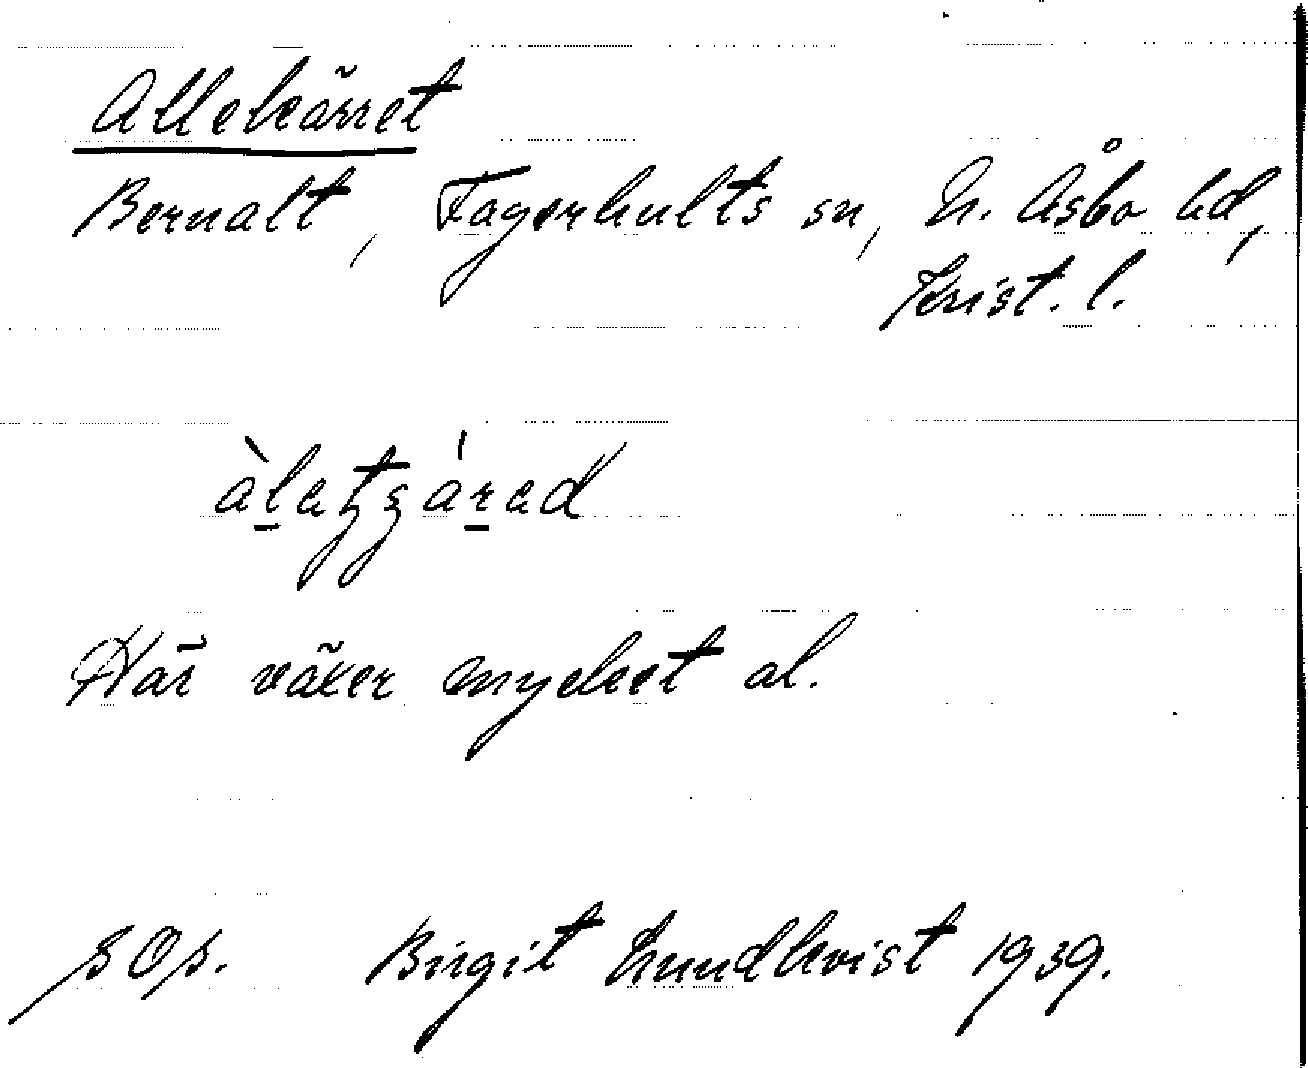 Allekärret
Bernalt, Fagerhults sn, N. Åsbo hd,
Krist. l.
Här växer mycket al.
Birgit Lundkvist 1939.